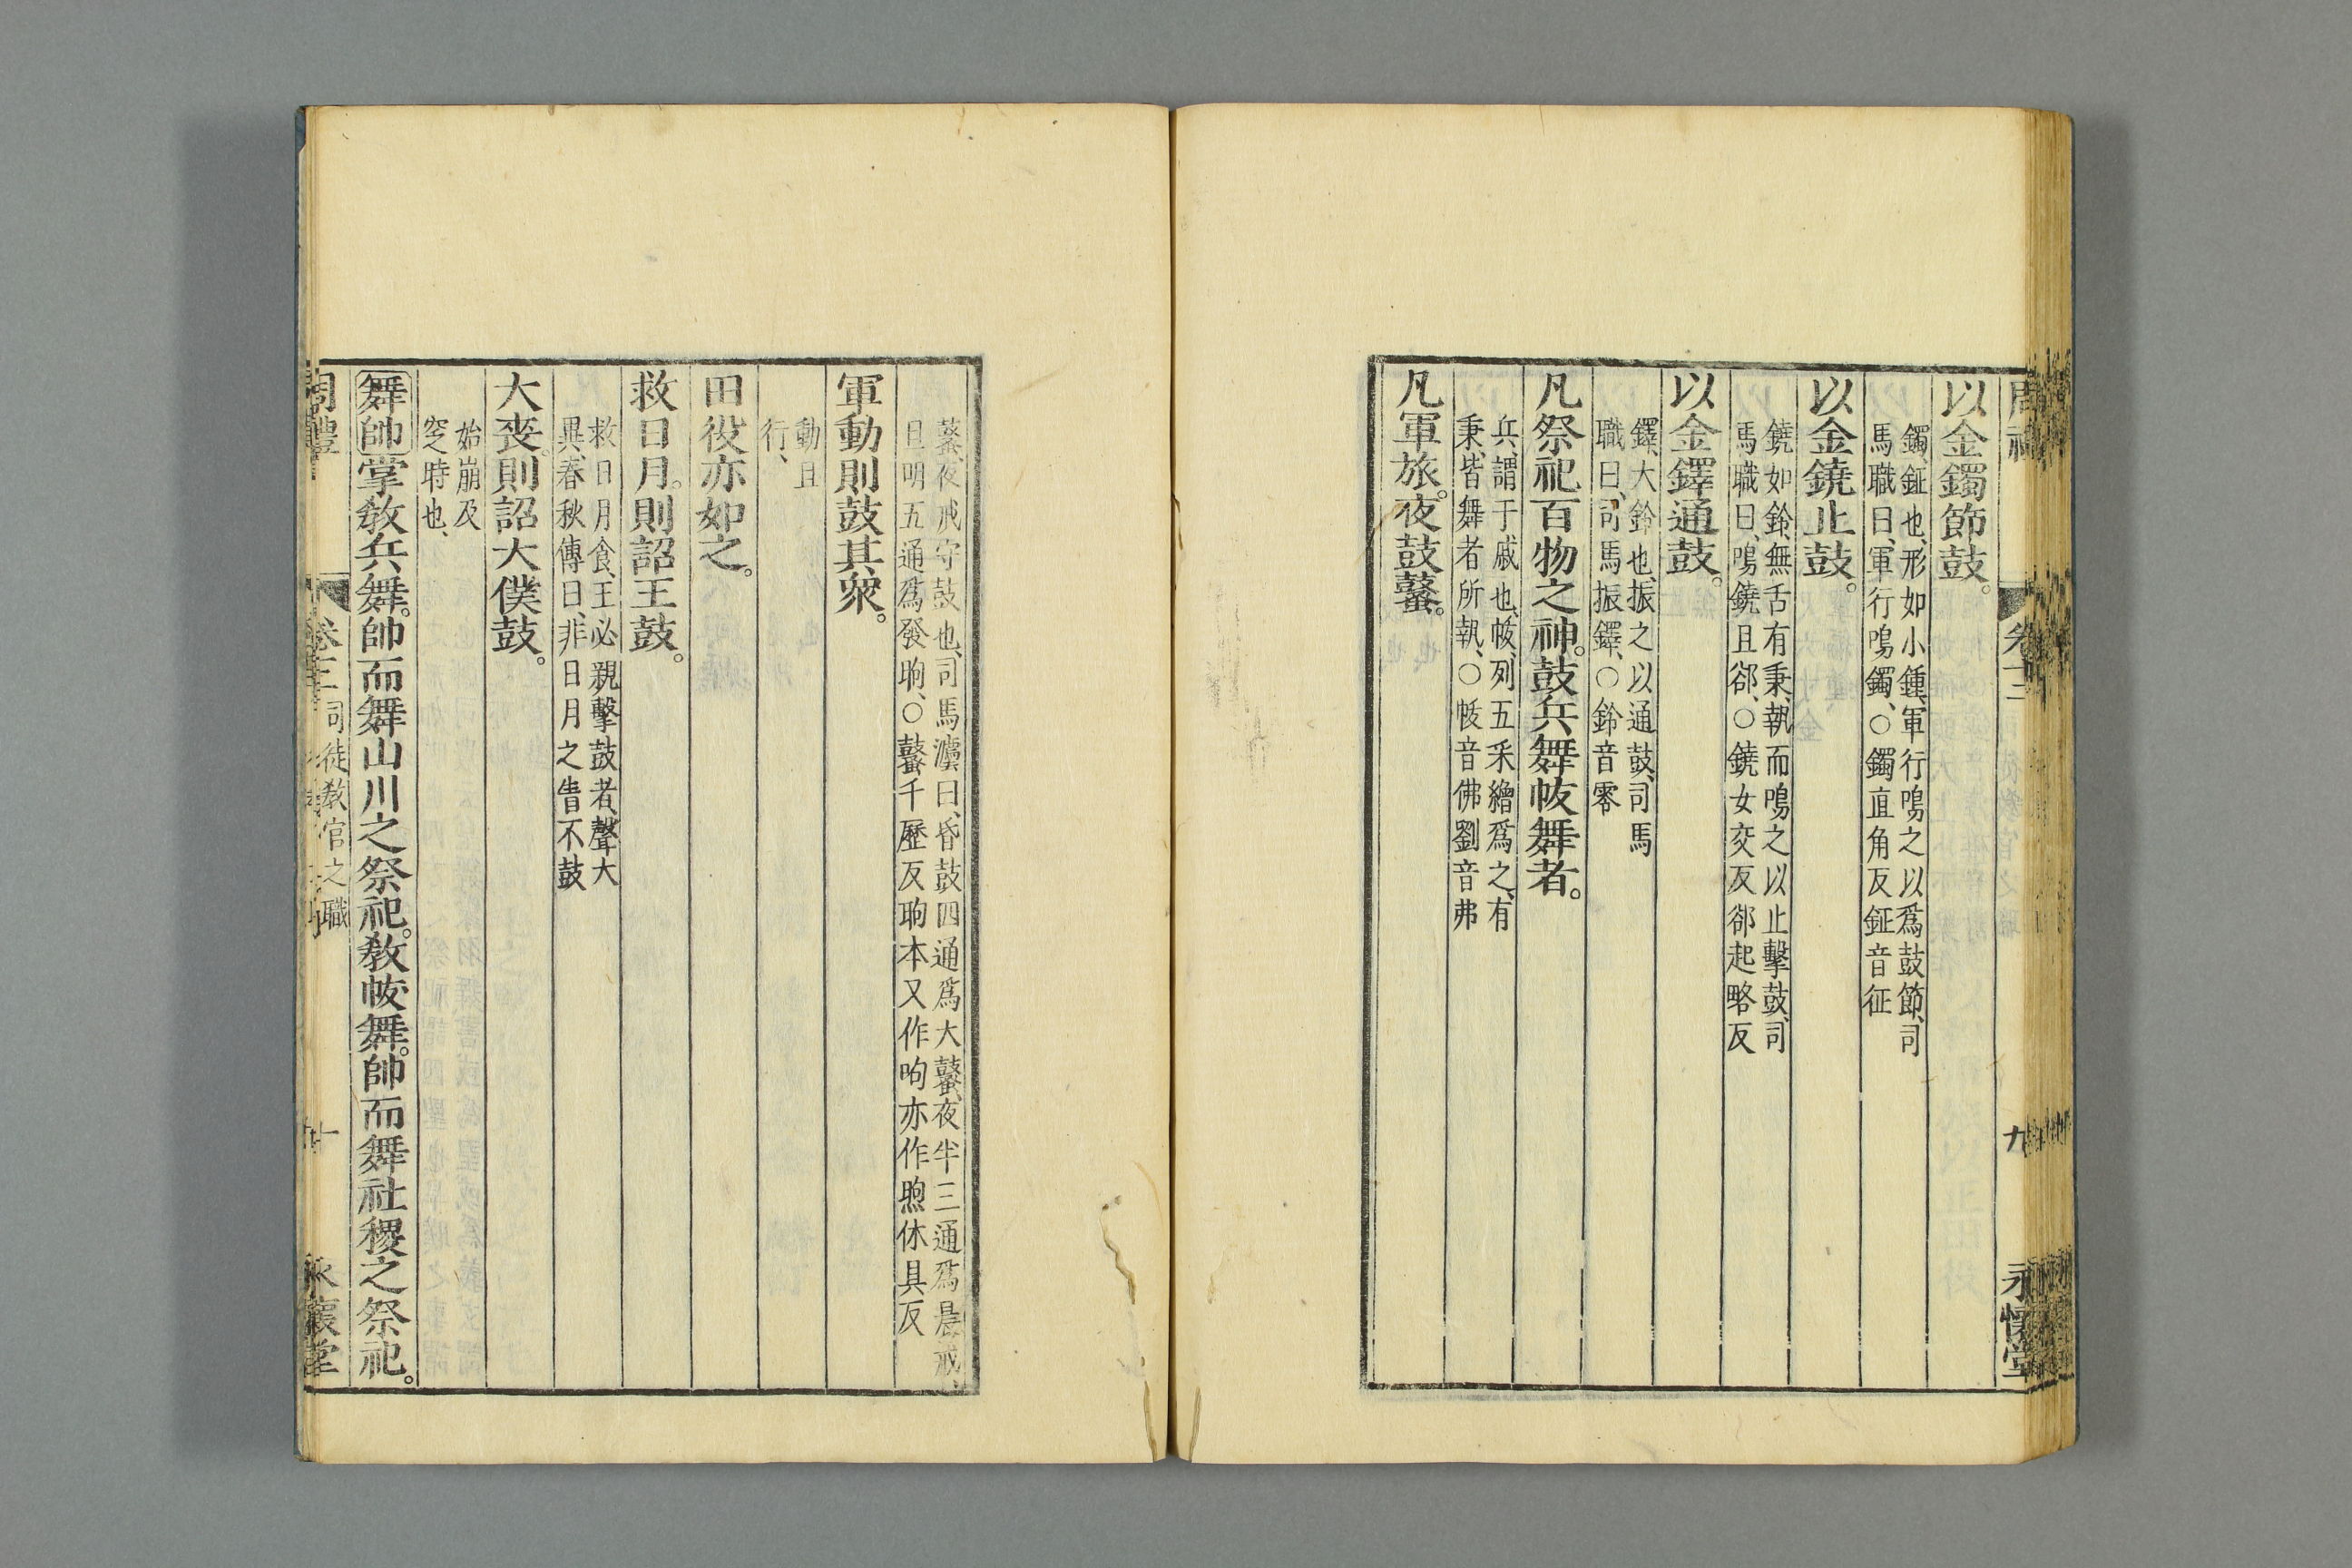 以金鐲節鼓。
鐲、鉦也、形如小鍾、軍行鳴之以爲鼓節、司
馬職曰、軍行鳴鐲、○鐲直角反鉦音征
以金鐃止鼓。
鐃如鈴、無舌有秉、執而鳴之以止擊鼓、司
馬職曰、鳴鐃且郤、○鐃女交反郤起略反
以金鐸通鼓。
鐸、大鈴也、振之以通鼓、司馬
職曰、司馬振鐸、○鈴音零
凡祭祀百物之神。鼓兵舞帗舞者。
兵、謂于戚也、帗、列五采繒爲之、有
秉、皆舞者所執、○帗音佛劉音弗
凡軍旅。夜鼓鼜。
卷三
九
永懷堂
鼜、夜戒守鼓也、司馬灋曰、昏鼓四通爲大鼜、夜半三通爲晨戒、
旦明五通爲發昫、○鼜千歷反昫本又作呴亦作煦休具反
軍動則鼓其衆。
動且
行、
田役亦如之。
救日月。則詔王鼓。
救日月食、王必親擊鼓者、聲大
異、春秋傳曰、非日月之眚不鼓
大喪。則詔大僕鼓。
始崩及
窆時也、
舞帥掌敎兵舞。帥而舞山川之祭祀。敎帗舞。帥而舞社稷之祭祀。
周禮
卷三
司徒敎官之職
十
永懷堂